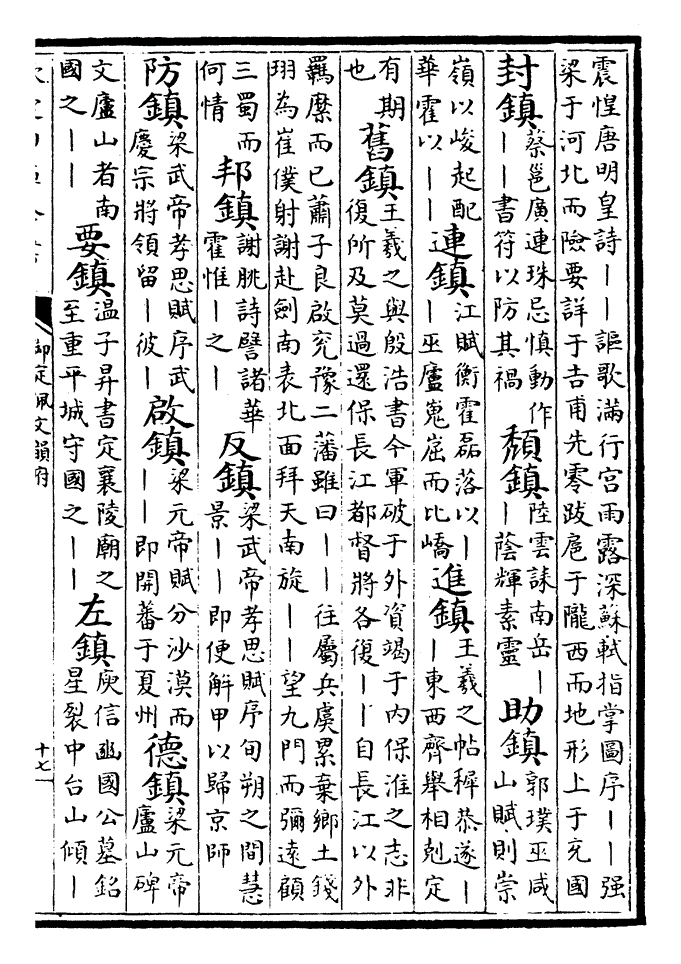 震惶唐明皇詩——謳歌滿行宫雨露深蘇軾指掌圖序——强
梁于河北而險要詳于吉甫先零跋扈于隴西而地形上于充國
封鎮 蔡邕廣連珠忌慎動作
——書符以防其禍
頺鎮 陸雲誄南岳—
—蔭輝素靈
助鎮 郭璞巫咸
山賦則崇
嶺以峻起配
華霍以——
連鎮 江賦衡霍磊落以—
—巫廬嵬崫而比嶠
進鎮 王羲之帖穉恭遂—
—東西齊舉相剋定
有期
也
舊鎮 王羲之與殷浩書今軍破于外資竭于内保淮之志非
復所及莫過還保長江都督將各復——自長江以外
羈縻而已蕭子良啟兖豫二藩雖曰——往屬兵虞累棄鄉土錢
珝為崔僕射謝赴劍南表北面拜天南旋——望九門而彌遠顧
三蜀而
何情
邦鎮 謝脁詩譬諸華
霍惟—之—
反鎮 梁武帝孝思賦序旬朔之間慧
景——即便解甲以歸京師
防鎮 梁武帝孝思賦序武
慶宗將領留—彼—
啟鎮 梁元帝賦分沙漠而
——即開蕃于夏州
德鎮 梁元帝
廬山碑
文廬山者南
國之——
要鎮 温子昇書定襄陵廟之
至重平城守國之——
左鎮 庾信豳國公墓銘
星裂中台山傾—
御定佩文韻府
十七